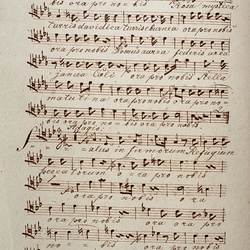 bis ora pro no - bis Rosa mystica
turris davidica turris eburnea ora pro nobis
ora pro nobis Domus aurea foederis arca
janua Cæli ora pro nobis Stella
matutina ora pro nobis ora pro no-
bis ora pro nobis ora pro nobis.
Adagio.
Salus infirmorum Refugium
peccatorum ora pro nobis
ora pro nobis ora
pro nobis ora pro
no - bis ora pro nobis